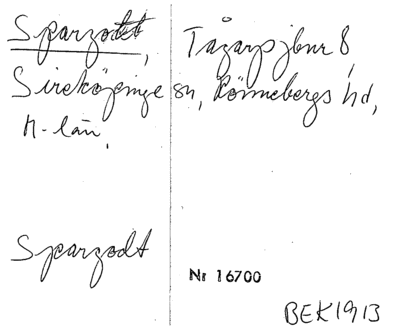 Sparzodt, Tågarps jbnr 8,
Sireköpinge sn, Rönnebergs hd,
M-län.
Sparzodt
Nr 16700
BEK1913